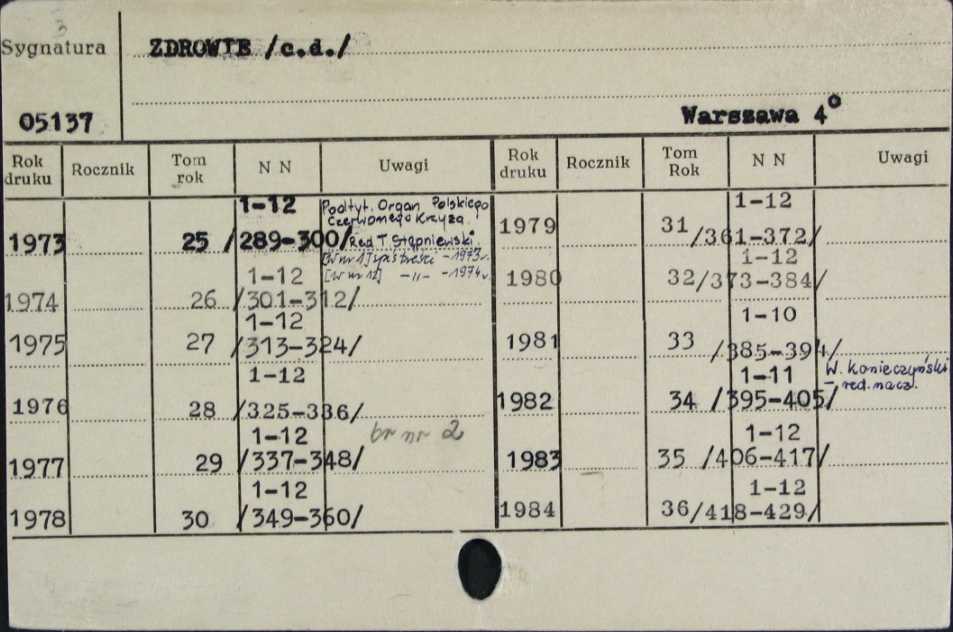 3
Sygnatura ZDROWIE /c.d./
05137 Warszawa 4°
Rok druku Rocznik Tom rok N N Uwagi Rok druku Rocznik Tom Rok N N Uwagi
1973 25 1-12 /289-300/ Podtyt. Organ Polskiego
Czerwonego Krzyża.
Red T. Stępniewski
[W nr 1] spis treści - 1973 r.
[W nr 12] -"- - 1974 r.
1974 26 1-12 /301-312/
1975 27 1-12 /313-324/
1976 28 1-12 /325-336/
1977 29 1-12 /337-348/ br nr 2
1978 30 1-12 /349-360/
1979 31 1-12 /361-372/
1980 32 1-12 /373-384/
1981 33 1-10 /385-394/
1982 34 1-11 /395-405/ W. Konieczyński
- red. nacz.
1983 35 1-12 /406-417/
1984 36 1-12 /418-429/